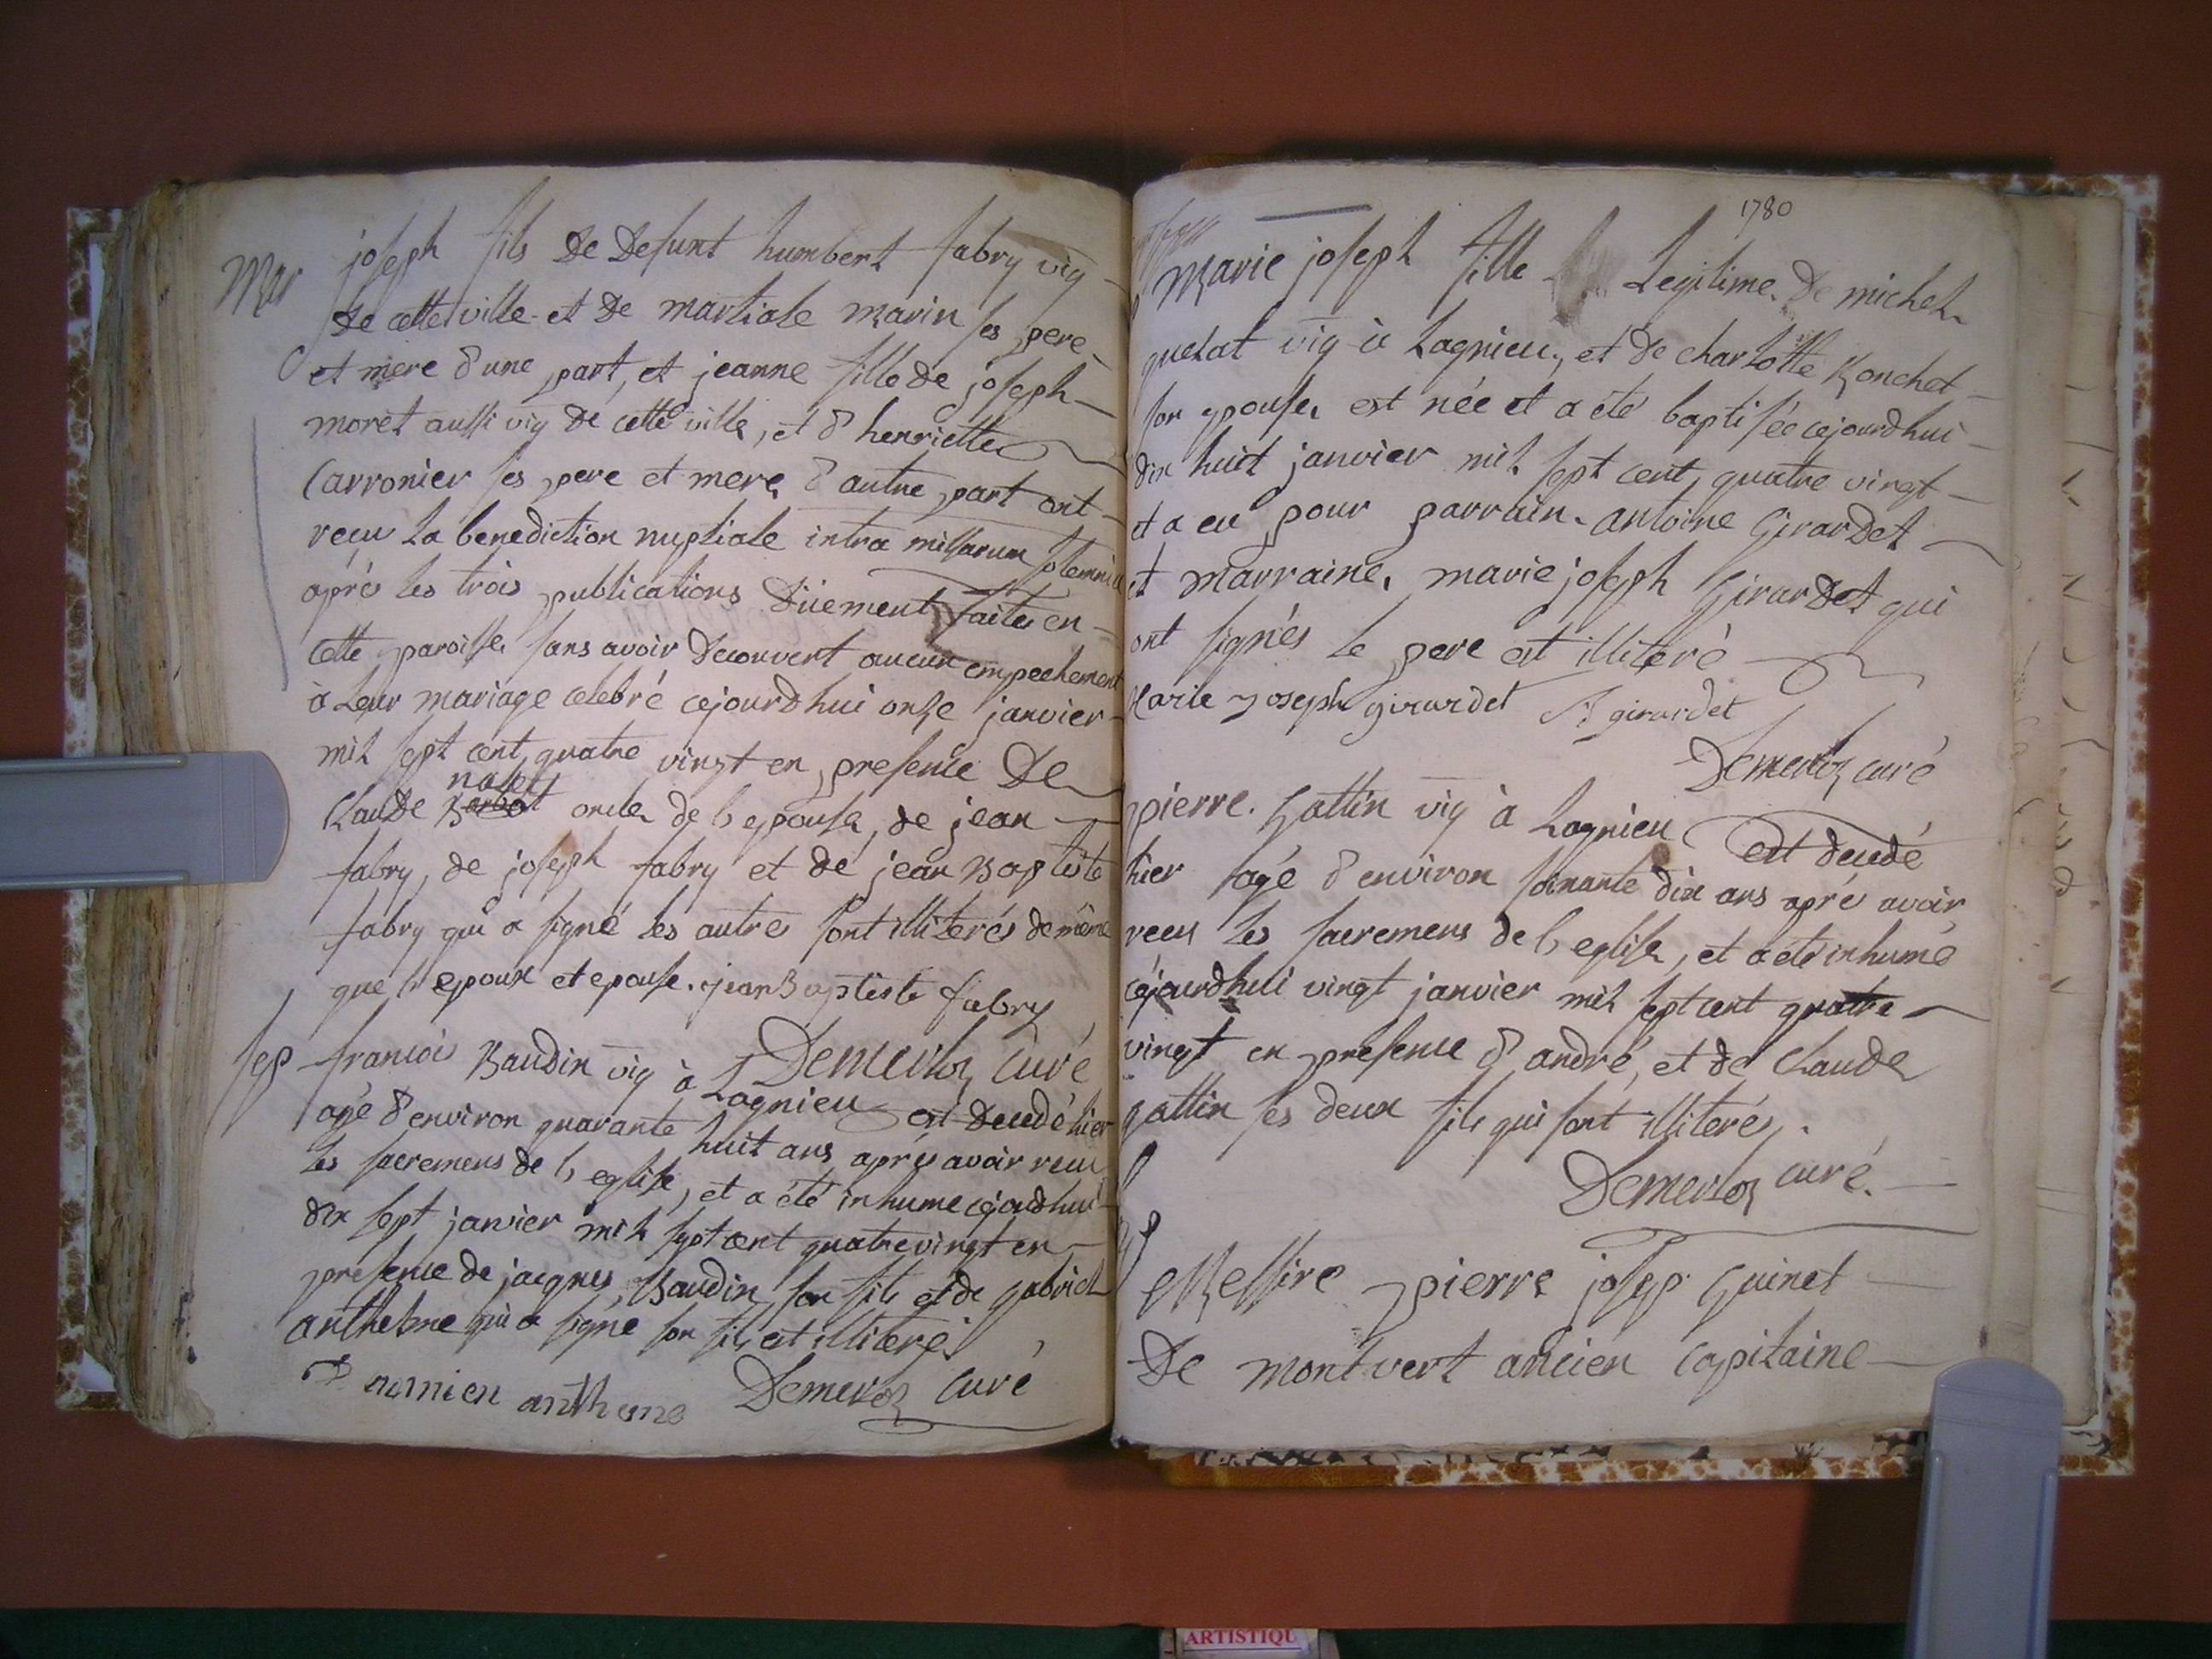 Mar joseph fils De Defunt humbert fabry vig
De cette ville et De martiale Marin ses pere
et mere d'une part, et jeanne fille de joseph
moret aussi vig de cette ville, et d'henriette
Carronier ses pere et mere d'autre part ont
reçu la benediction nuptiale intra missarum solemnia
après les trois publications Düement faites en
cette paroisse sans avoir decouvert aucun empechement
à leur mariage celebré cejourdhui onze janvier
mil sept cent quatre vingt en presence De
Claude oncle de l'epouse, de jean
fabry, de joseph fabry et de jean Baptiste
fabry qui a signé les autres sont illiterés de même
que l'epoux et epouse. jean Baptiste fabry
Demerloz Curé
sep françois Baudin vig à Lagnieu est decedé hier
agé d'environ quarante huit ans après avoir reçu
les sacremens de l'eglise, et a été inhumé cejourdhui
dix sept janvier mil sept cent quatre vingt en
presence de jacques Baudin son fils et de gabriel
anthelme qui a signé son fils est illiteré
anthelme Demerloz Curé
1780
Marie joseph fille Legitime De michel
quelat vig à Lagnieu, et de charlotte Ronchet
son epouse, est née et a été baptisée cejourdhui
dix huit janvier mil sept cent quatre vingt
et a eu pour parrain antoine Girardet
et marraine, marie joseph Girardet qui
ont signés le pere est illiteré
Marie Joseph girardet A girardet
Demerloz curé
pierre Gattin vig à Lagnieu est decedé
hier agé d'environ soixante dix ans après avoir
reçu les sacremens de l'eglise, et a été inhumé
cejourdhui vingt janvier mil sept cent quatre
vingt en presence d'andré, et de Claude
gattin ses deux fils qui sont illiterés.
Demerloz curé.
Messire pierre josep Guinet
De montvert ancien Capitaine
ARTISTIQU